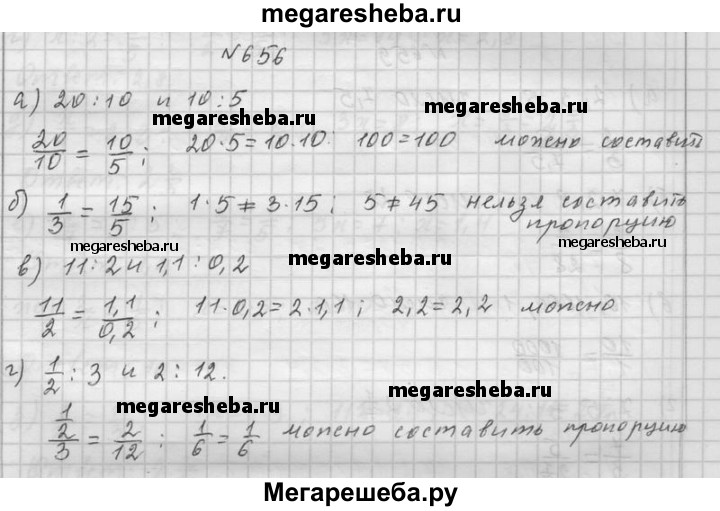 megaresheba.ru
N656
а) 20:10 и 10:5
megaresheba.ru megaresheba.ru
20/10 = 10/5; 20·5=10·10. 100=100 можно составит
б) 1/3 = 15/5; 1·5≠3·15; 5≠45 нельзя составить
пропорцию
megaresheba.ru megaresheba.ru megaresheba.ru
в) 11:2 и 1,1:0,2
11/2 = 1,1/0,2; 11·0,2=2·1,1; 2,2=2,2 можно
г) 1/2 : 3 и 2:12.
megaresheba.ru megaresheba.ru
1/2/3 = 2/12; 1/6 = 1/6 можно составить пропорцию
Мегарешеба.ру